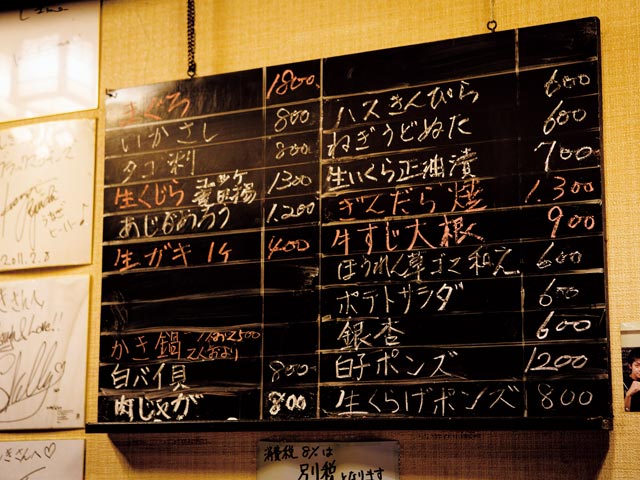 まぐろ 1800
いかさし 800
タコ刺 800
生くじら 1300
あじかうろう 1.200
生ガキ 1ケ 400
かき鍋 1人前2500 2人前より
白バイ貝 800
肉じゃが 800
ハスきんぴら 600
ねぎうどぬた 600
生いくら正油漬 700
ぎんだら焼 1.300
牛すじ大根 900
ほうれん草ゴマ和え 600
ポテトサラダ 600
銀杏 600
白子ポンズ 1200
生くらげポンズ 800
消費税 8%は
別税となります
2011.2.8